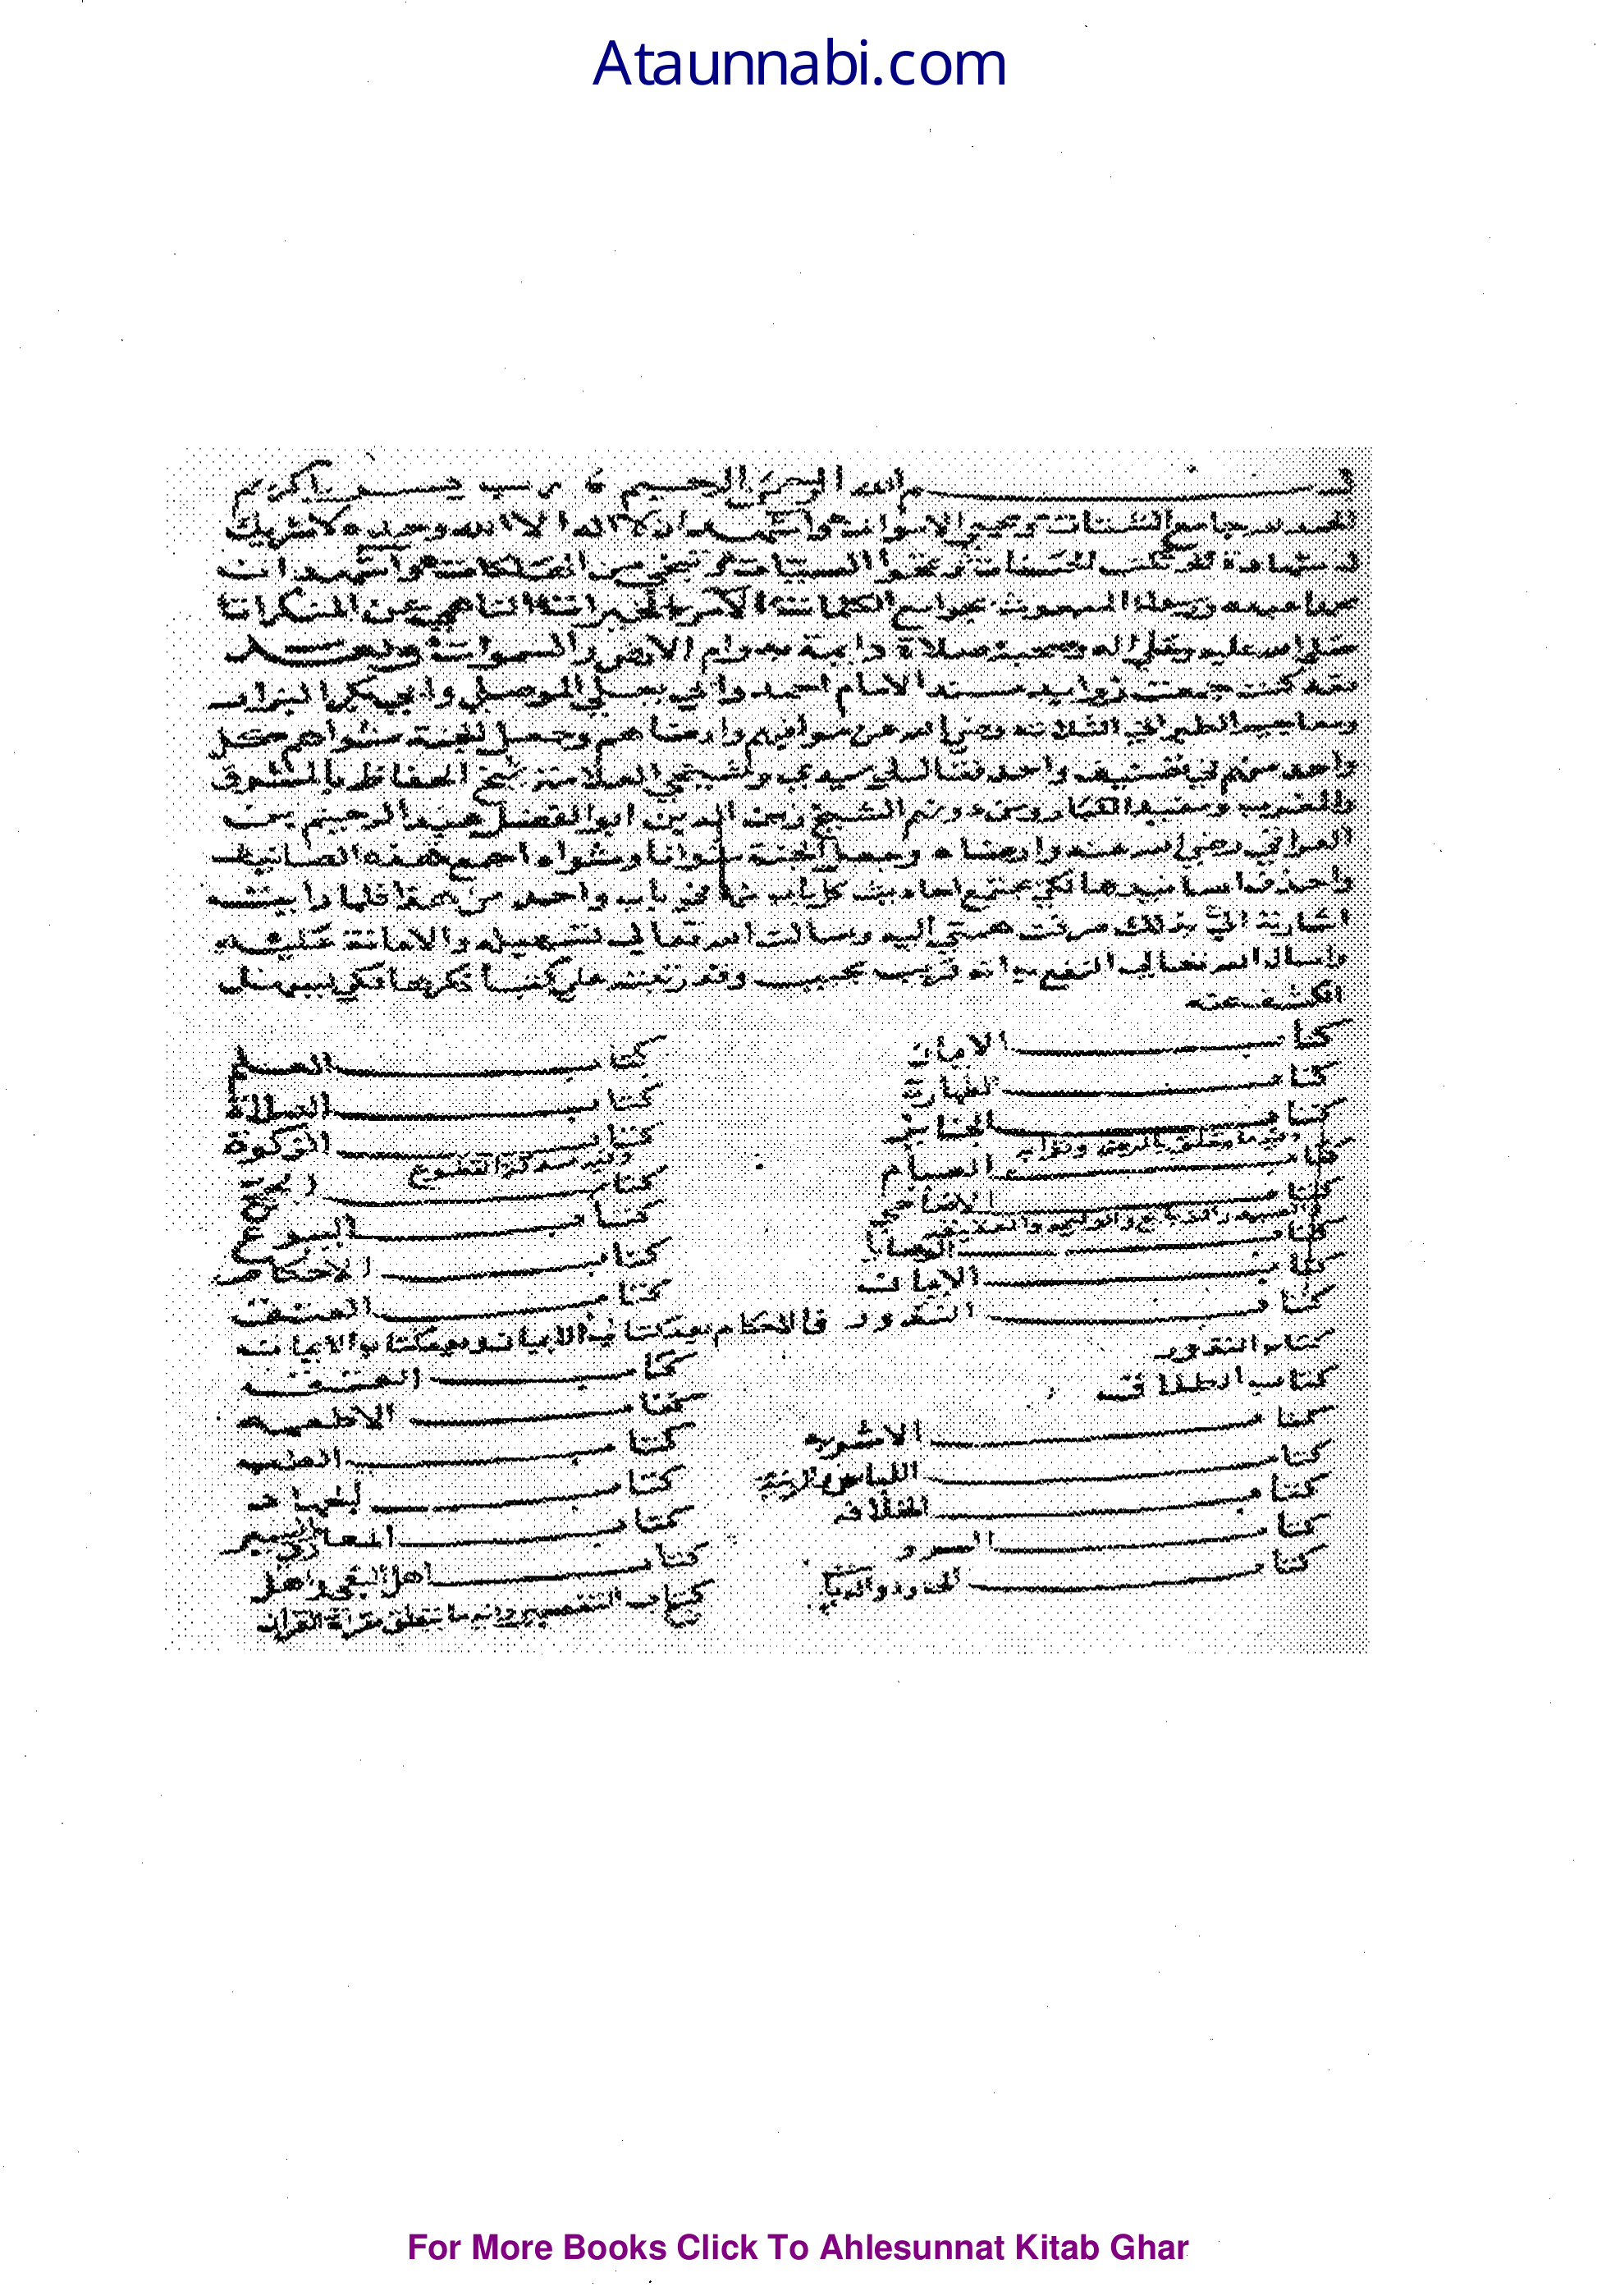 Ataunnabi.com
بسم الله الرحمن الرحيم رب يسر يا كريم
الحمد لله جامع الشتات ومحيي الاموات واشهد ان لا اله الا الله وحده لا شريك
له شهادة تكتب الحسنات وتمحوا السيئات وتنجي من المهلكات واشهد ان
محمدا عبده ورسوله المبعوث بجوامع الكلمات الآمر بالخيرات الناهي عن المنكرات
صلى الله عليه وعلى اله وصحبه صلاة دايمة بدوام الارض والسموات وبعد
فقد كنت جمعت زوايد مسند الامام احمد وابي يعلى الموصلي وابي بكر البزار
ومعاجيم الطبراني الثلاثه رضي الله عن مؤلفيهم وارضاهم وجعل الجنة مثواهم كل
واحد منهم في تصنيف واحد فقال لي سيدي وشيخي العلامة شيخ الحفاظ بالمشرق
والمغرب ومفيد الكبار ومن دونهم الشيخ زين الدين ابو الفضل عبد الرحيم بن
العراقي رضي الله عنه وارضاه وجعل الجنة مثواه اجمع هذه التصانيف
واحذف اسانيدها لكي تجتمع احاديث كل باب منها في باب واحد من هذا فلما رايت
اشارته الي بذلك صرفت همتي اليه وسالت الله تعالى تسهيله والاعانة عليه
واسال الله تعالى النفع به انه قريب مجيب وقد رتبته على كتب اذكرها لكي يسهل
الكشف عنه
كتاب الايمان كتاب العلم
كتاب الطهارة كتاب الصلاة
كتاب الجنايز كتاب الزكوة
وفيه ما يتعلق بالمرض وثوابه وفيه صدقة التطوع
كتاب الصيام كتاب الحج
كتاب الاضاحي كتاب البيوع
والصيد والذبايح والوليمه والعقيقه
كتاب الوصايا كتاب الاحكام
كتاب الايمان كتاب العتق
كتاب النذور فالاحكام
كتاب النذور
كتاب الطلاق كتاب
كتاب الاطعمه
كتاب الاشربه كتاب الطب
كتاب اللباس والزينة كتاب الجهاد
كتاب الخلافه كتاب المغازي والسير
كتاب كتاب اهل البغي واهل
كتاب الحدود والديات كتاب التفسير وفيه ما يتعلق بقراة القران
For More Books Click To Ahlesunnat Kitab Ghar